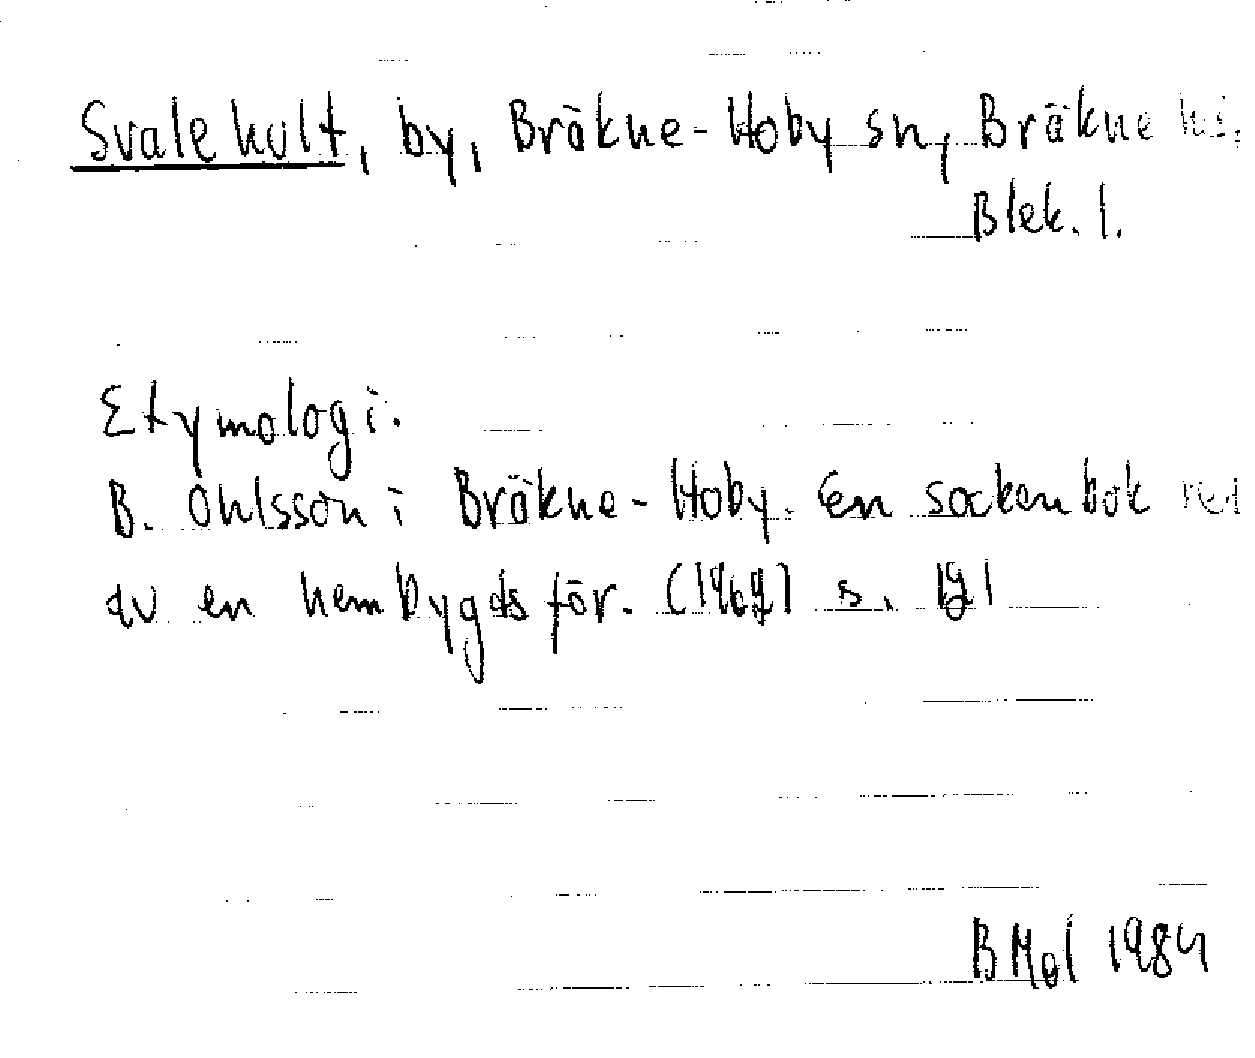 Svalehult, by, Bräkne-Hoby sn, Bräkne hd,
Blek. l.
Etymologi.
B. Ohlsson i Bräkne-Hoby. En sockenbok red
av en hembygdsför. (1969) s.
BMol 1984